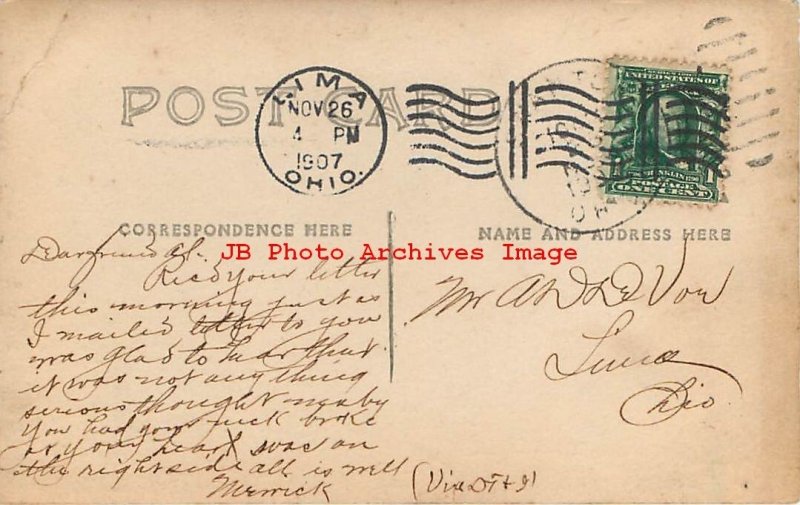 POST CARD
LIMA
NOV 26
4 PM
1907
OHIO.
UNITED STATES OF
FRANKLIN
POSTAGE
ONE CENT
CORRESPONDENCE HERE
NAME AND ADDRESS HERE
JB Photo Archives Image
Dear friend Al.
Recd your letter
this morning just as
I mailed letter to you
was glad to hear that
it was not any thing
serious thought maby
You had your neck broke
as your head was on
the right side all is well
Merrick
Mr A D L D Vou
Lima
Ohio
(Via DT & I)